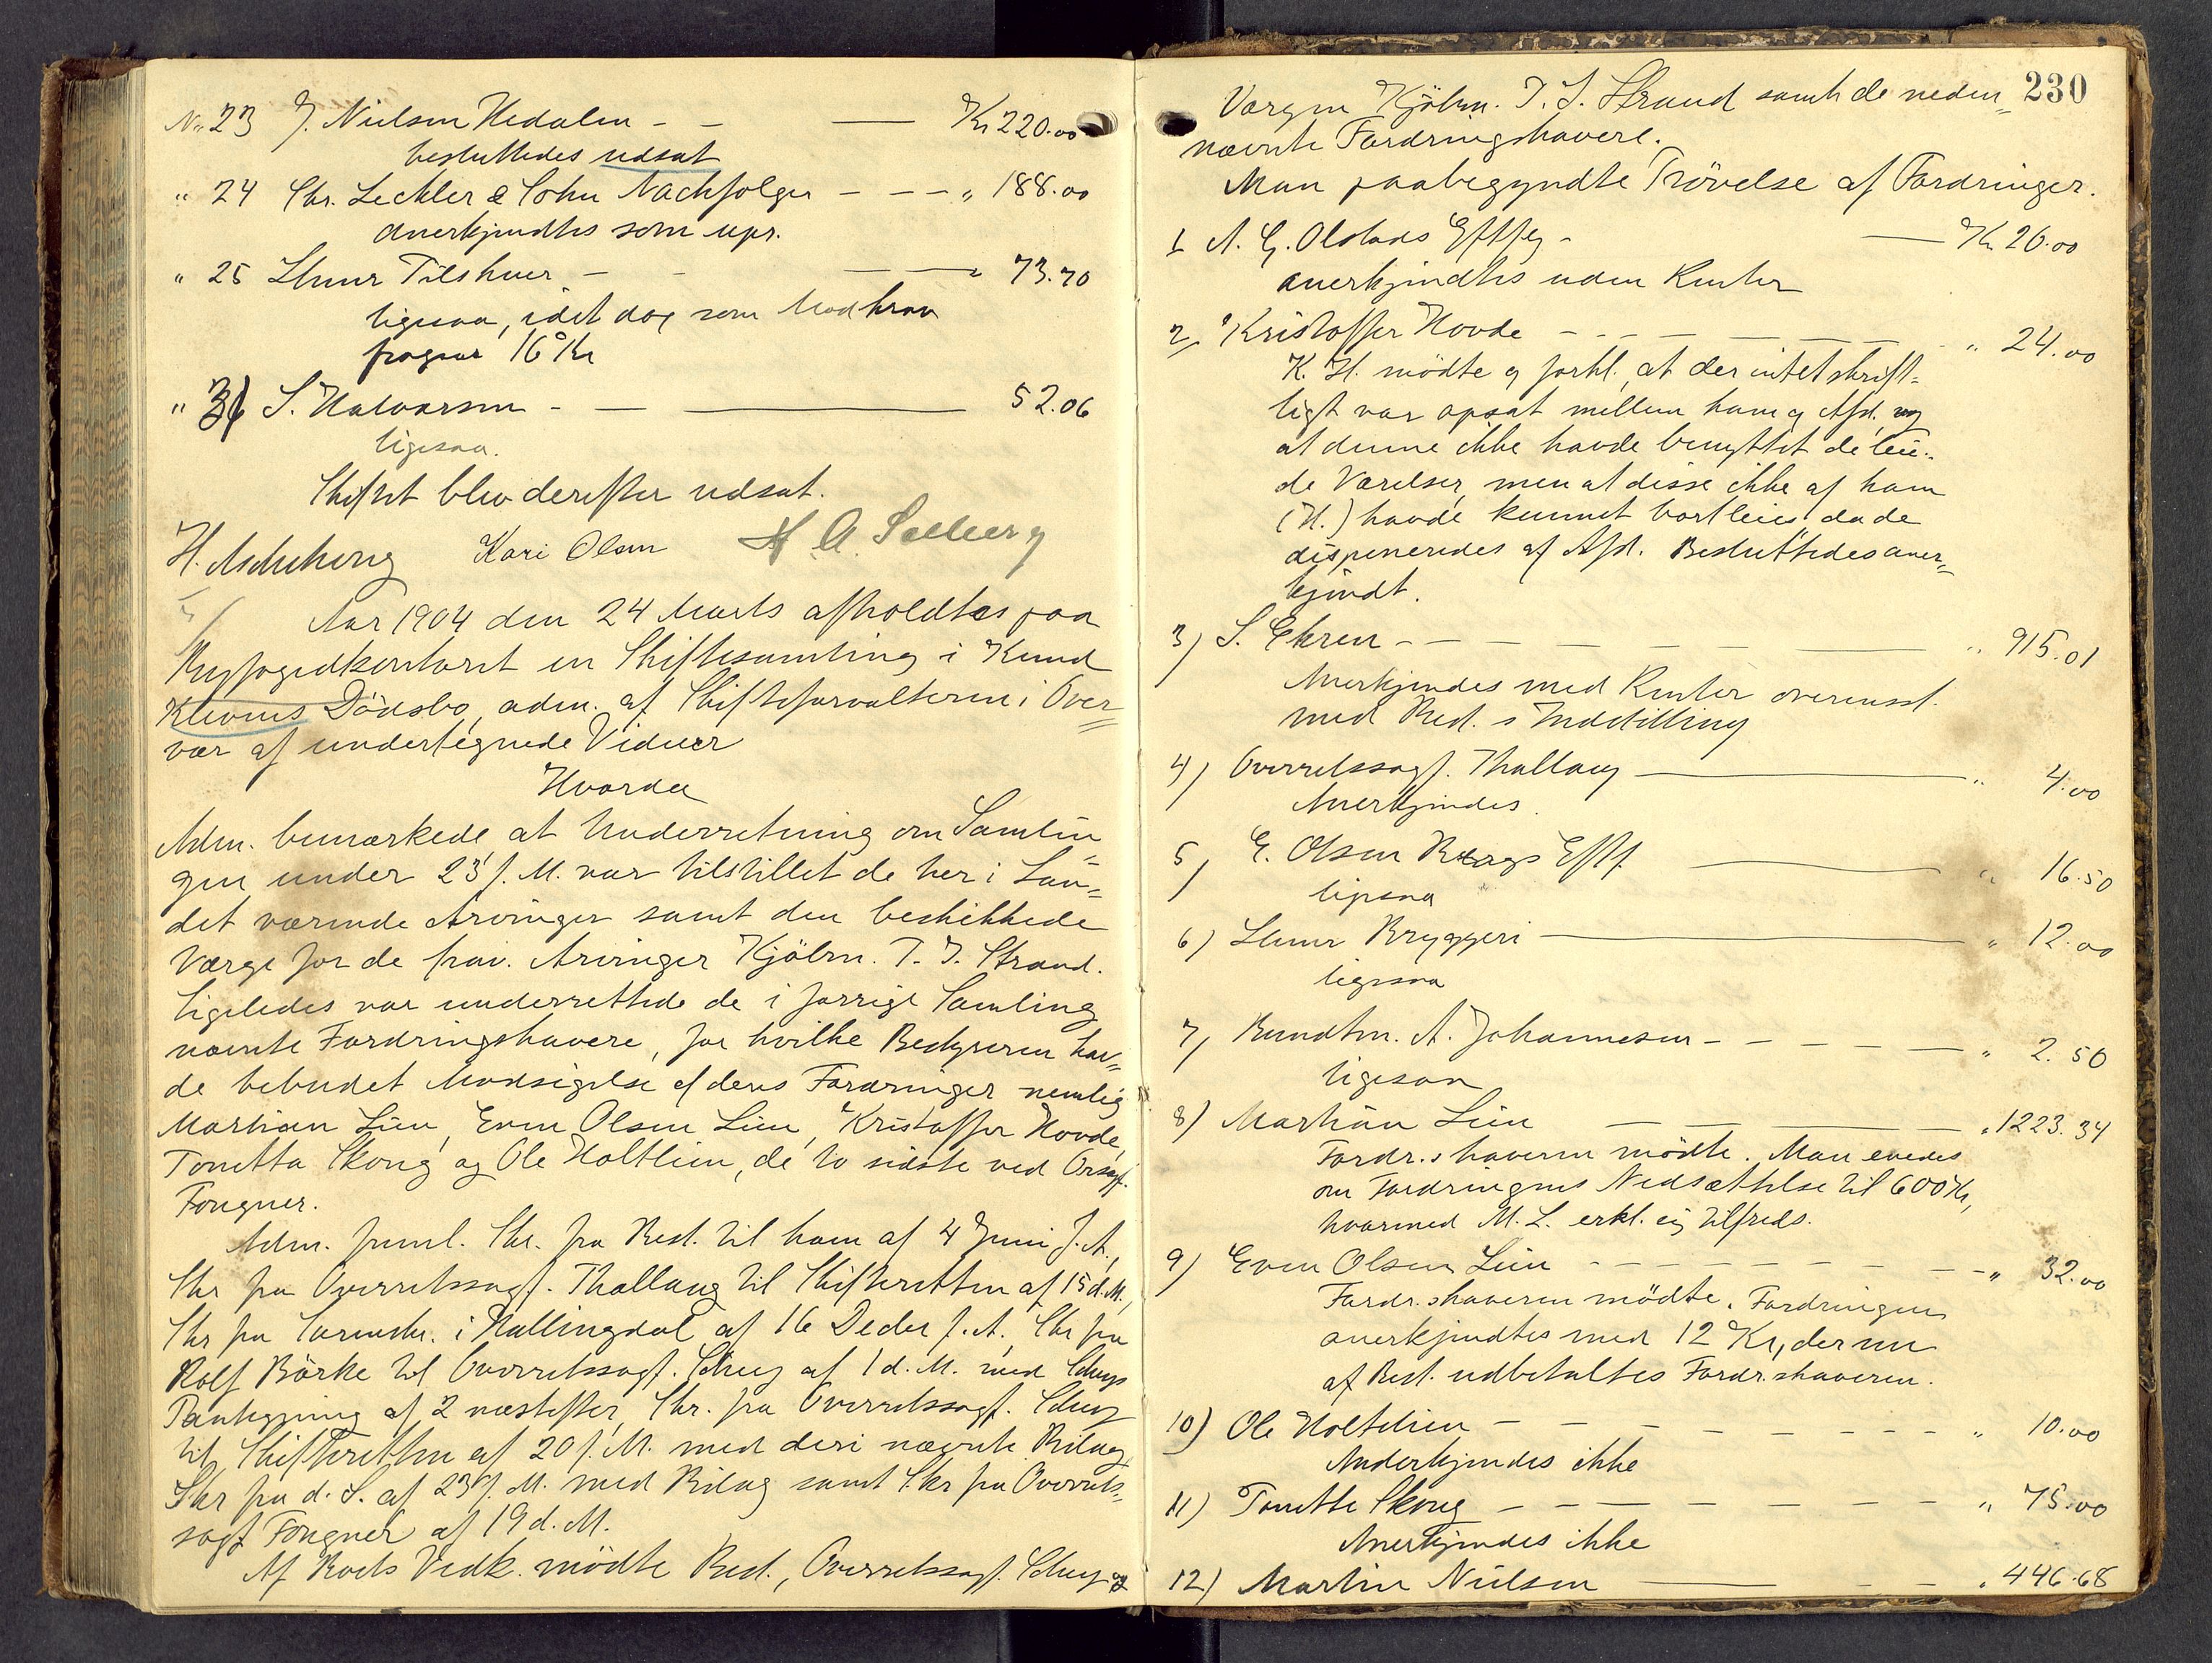 No 23 J. Nielsen Hedalen - - — Kr 220.00
besluttedes udsat
" 24 Chr. Lechler & Sohn Nachfolger - - - " 188.00
anerkjendtes som upr.
" 25 Lhmr Tilskuer - - — " 73.70
ligesaa, idet dog som Modkrav
fragaar 16 Kr
" 36 S. Halvorsen - — 52.06
ligesaa.
Skiftet blev derefter udsat.
H. Aschehoug Kari Olsen H A Solberg
Aar 1904 den 24 Marts afholdtes paa
Byfogedkontoret en Skiftesamling i Knud
Klevens Dödsbo, adm. af Skifteforvalteren i Over=
vær af undertegnede Vidner
Hvorda
Adm. bemærkede, at Underretning om Samlin=
gen under 23 f. M. var tilstillet de her i Lan=
det værende Arvinger samt den beskikkede
Værge for de frav. Arvinger Kjöbm. T. J. Strand.
Ligeledes var underrettede de i forrige Samling
nævnte Fordringshavere, for hvilke Bestyreren hav=
de bebudet Modsigelse af deres Fordringer nemlig
Martian Lien, Even Olsen Lien, Kristoffer Hovde,
Tonetta Skoug og Ole Holtlien, de to sidste ved Orsagf.
Fougner.
Adm. freml. Skr. fra Best. til ham af 4 Juni f. A.,
Skr fra Overretssagf. Thallaug til Skifteretten af 15 d. M.,
Skr fra Sorenskr. i Hallingdal af 16 Decbr f. A., Skr fra
Rolf Börke til Overretssagf. Schey af 1 d. M. med Scheys
Paategning af 2 næstefter, Skr. fra Overretssagf. Schey
til Skifteretten af 20 f. M. med deri nævnte Bilag
Skr fra d. S. af 23 f. M. med Bilag samt Skr fra Overrets=
sagf Fougner af 19 d. M.
Af Boets Vedk. mödte Best., Overretssagf. Schey og
230
Værgen Kjöbm. T. J. Strand samt de neden=
nævnte Fordringshavere.
Man paabegyndte Prövelse af Fordringer.
1 A. G. Olstads Eftfg - — Kr 26.00
anerkjendtes uden Renter
2, Kristoffer Hovde - - - — " 24.00
K. H. mödte og forkl., at der intet skrift=
ligt var opsat mellem ham og Afd. og
at denne ikke havde benyttet de leie=
de Værelser, men at disse ikke af ham
(H.) havde kunnet bortleies, da de
disponeredes af Afd. Besluttedes aner=
kjendt.
3) S. Ehren - - — " 915.01
Anerkjendes med Renter overensst.
med Best. s Indstilling
4) Overretssagf. Thallaug — " 4.00
Anerkjendes.
5) E. Olsen Bergs Eftf — " 16.50
ligesaa
6) Lhmr Bryggeri — " 12.00
ligesaa
7, Bundtm. A. Johannesen - - — " 2.50
ligesaa
8) Martian Lien — " 1223.34
Fordr.shaveren mödte. Man enedes
om Fordringens Nedsættelse til 600 Kr,
hvormed M. L. erkl. sig tilfreds.
9) Even Olsen Lien - - - " 32.00
Fordr.shaveren mödte. Fordringen
anerkjendtes med 12 Kr, der nu
af Best. udbetaltes Fordr.shaveren.
10) Ole Holtelien - - - " 10.00
Anderkjendes ikke
11) Tonette Skoug - - — " 75.00
Anerkjendes ikke
12) Martin Nielsen — " 446.68